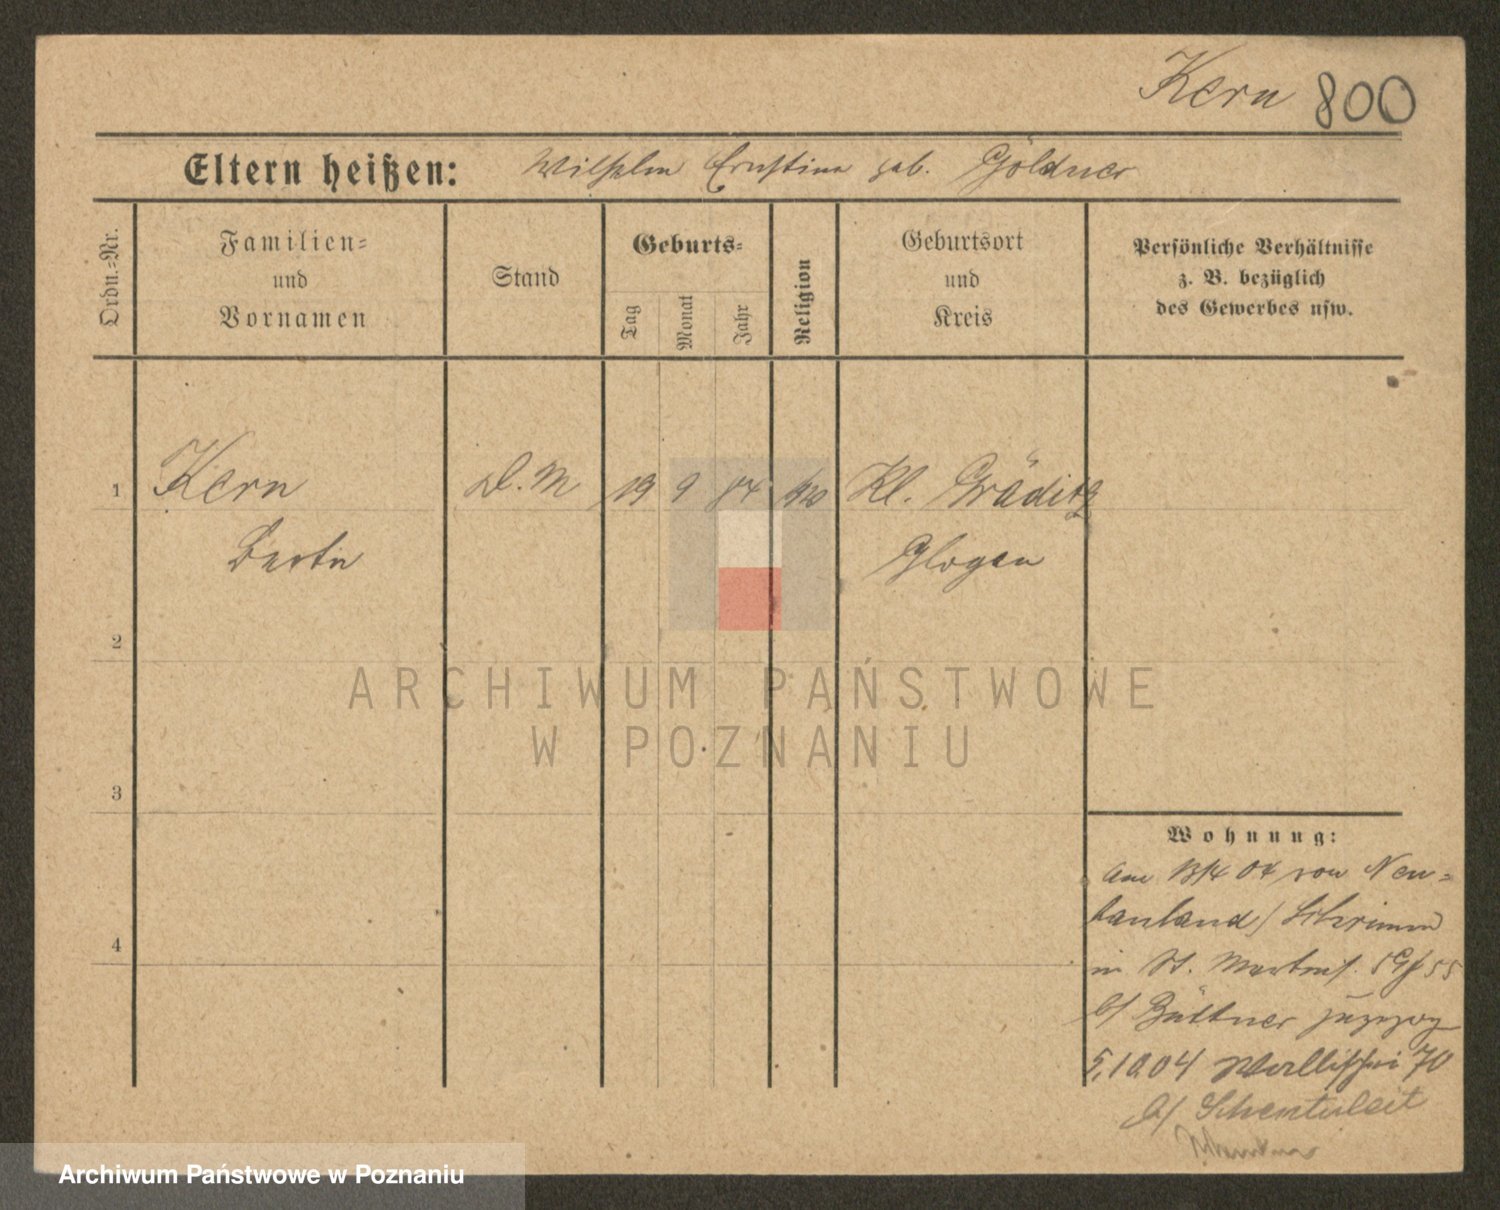 Kern 800
Eltern heißen: Wilhelm Ernstine geb. Göldner
Ordn.=Nr.
Familien=
und
Vornamen
Stand
Geburts=
Tag
Monat
Jahr
Religion
Geburtsort
und
Kreis
Persönliche Verhältnisse
z. B. bezüglich
des Gewerbes usw.
1 Kern D. M 19 9 84 Kl. Gräditz
Glogau
2
ARCHIWUM PAŃSTWOWE
W POZNANIU
3
Wohnung:
am 13/4 04 von Neu=
/ Schrimm
4
in St. Martinst. 55
b/ Büttner zugezog
5.10.04 Wallischei 70
b/
Archiwum Państwowe w Poznaniu